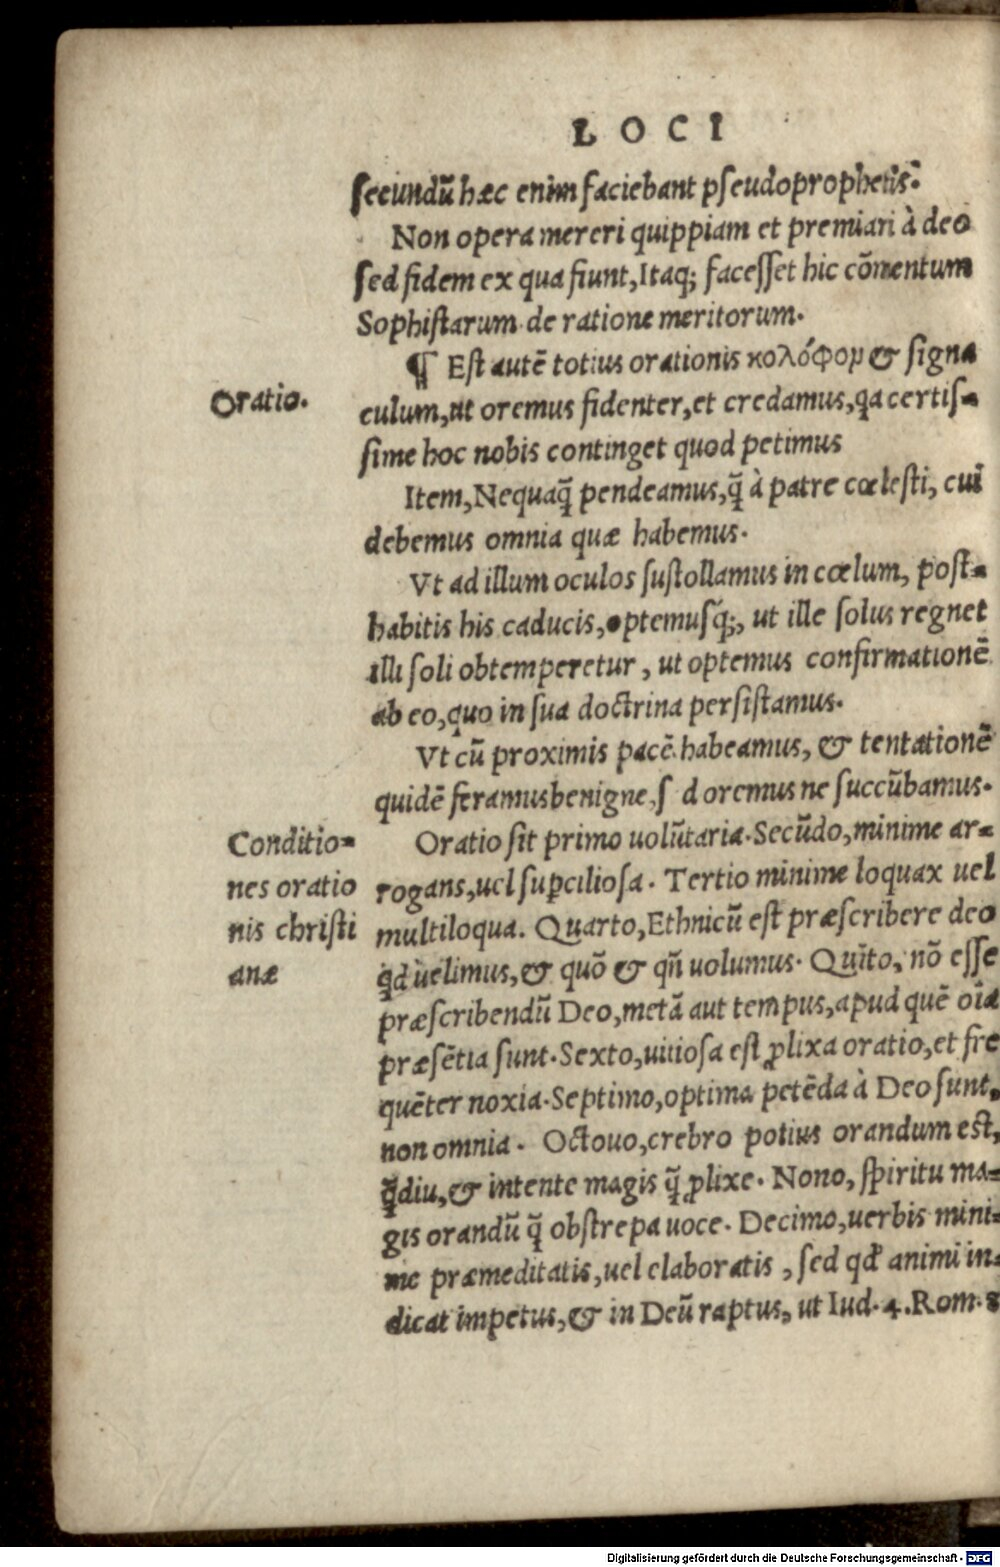 LOCI
secundū hæc enim faciebant pseudoprophetis.
Non opera mereri quippiam et premiari à deo
sed fidem ex qua fiunt, Itaq; facesset hic cōmentum
Sophistarum de ratione meritorum.
¶ Est autē totius orationis κολόφον & signa
Oratio.
culum, ut oremus fidenter, et credamus, qa certis-
sime hoc nobis continget quod petimus
Item, Nequaq̄ pendeamus, q̄ à patre cœlesti, cui
debemus omnia quæ habemus.
Vt ad illum oculos sustollamus in cœlum, post-
habitis his caducis, optemusq̄;, ut ille solus regnet
illi soli obtemperetur, ut optemus confirmationē
ab eo, quo in sua doctrina persistamus.
Vt cū proximis pacē habeamus, & tentationē
quidē feramus benigne, s d oremus ne succūbamus.
Conditio-
nes oratio
nis christi
anæ
Oratio sit primo uolūtaria. Secūdo, minime ar-
rogans, uel suꝑciliosa. Tertio minime loquax uel
multiloqua. Quarto, Ethnicū est præscribere deo
qd uelimus, & quō & qn̄ uolumus. Quīto, nō esse
præscribendū Deo, metā aut tempus, apud quē oīa
præsētia sunt. Sexto, uitiosa est ꝓlixa oratio, et fre
quēter noxia. Septimo, optima petēda à Deo sunt,
non omnia. Octouo, crebro potius orandum est,
q̄diu, & intente magis q̄ ꝓlixe. Nono, spiritu ma-
gis orandū q̄ obstrepa uoce. Decimo, uerbis mini-
me præmeditatis, uel elaboratis, sed qd animi in-
dicat impetus, & in Deū raptus, ut Iud. 4. Rom. 8
Digitalisierung gefördert durch die Deutsche Forschungsgemeinschaft - DFG